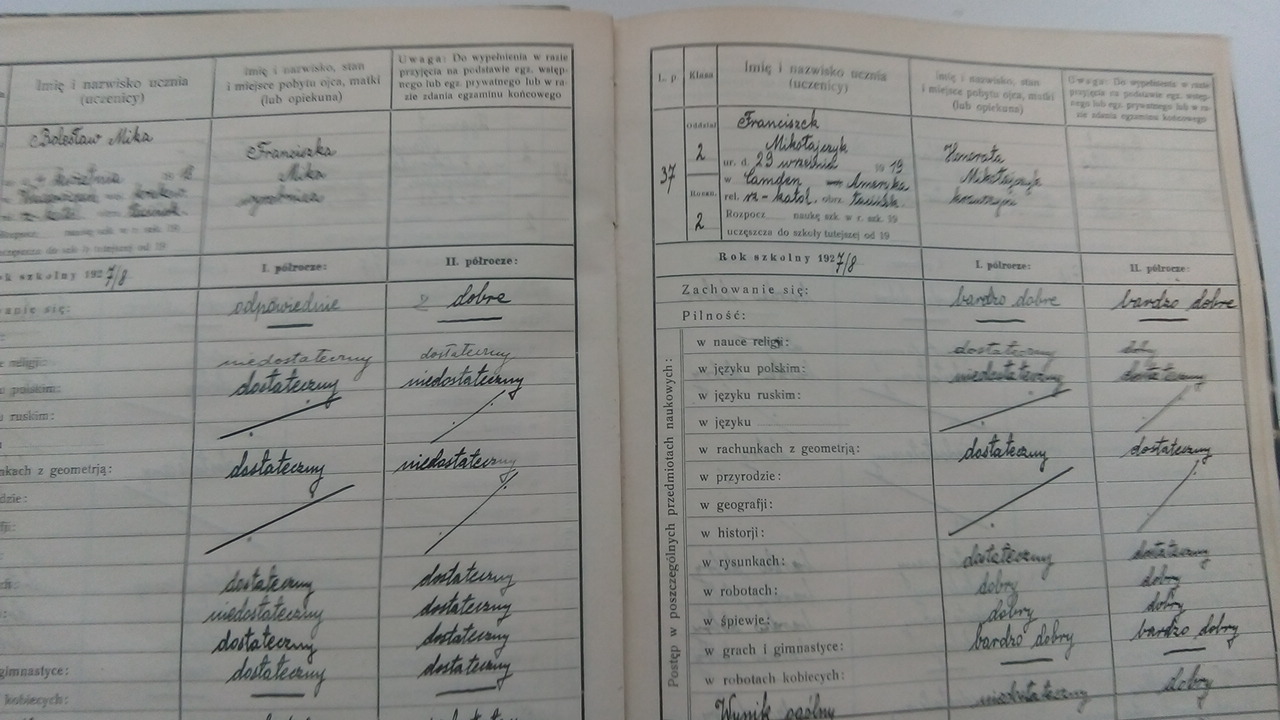 Imię i nazwisko ucznia
(uczenicy)
Imię i nazwisko, stan
i miejsce pobytu ojca, matki
(lub opiekuna)
Uwaga: Do wypełnienia w razie
przyjęcia na podstawie egz. wstęp-
nego lub egz. prywatnego lub w ra-
zie zdania egzaminu końcowego
Bolesław Mika
Franciszka
Mika
kwietnia
Rozpocz. naukę szk. w r. szk. 19
uczęszcza do szkoły tutejszej od 19
rok szkolny 1927/8
I. półrocze:
II. półrocze:
odpowiednie
dobre
religji:
niedostateczny
dostateczny
polskim:
dostateczny
niedostateczny
ruskim:
nkach z geometrją:
dostateczny
niedostateczny
dostateczny
dostateczny
niedostateczny
dostateczny
dostateczny
dostateczny
gimnastyce:
dostateczny
dostateczny
kobiecych:
L. p.
Klasa
Imię i nazwisko ucznia
(uczenicy)
Imię i nazwisko, stan
i miejsce pobytu ojca, matki
(lub opiekuna)
Uwaga: Do wypełnienia w razie
przyjęcia na podstawie egz. wstęp-
nego lub egz. prywatnego lub w ra-
zie zdania egzaminu końcowego
37
Oddział
2
Roczn.
2
Franciszek
Mikołajczyk
ur. d. 29 września w 19
w Camden — Ameryka
rel. rz-katol. obrz. łaciński
Rozpocz. naukę szk. w r. szk. 19
uczęszcza do szkoły tutejszej od 19
Honorata
Mikołajczyk
Rok szkolny 1927/8
I. półrocze:
II. półrocze:
Zachowanie się:
bardzo dobre
bardzo dobre
Pilność:
Postęp w poszczególnych przedmiotach naukowych:
w nauce religji:
dostateczny
dobry
w języku polskim:
niedostateczny
dostateczny
w języku ruskim:
w języku
w rachunkach z geometrją:
dostateczny
dostateczny
w przyrodzie:
w geografji:
w historji:
w rysunkach:
dostateczny
dostateczny
w robotach:
dobry
dobry
w śpiewje:
dobry
dobry
w grach i gimnastyce:
bardzo dobry
bardzo dobry
w robotach kobiecych:
Wynik ogólny
niedostateczny
dobry